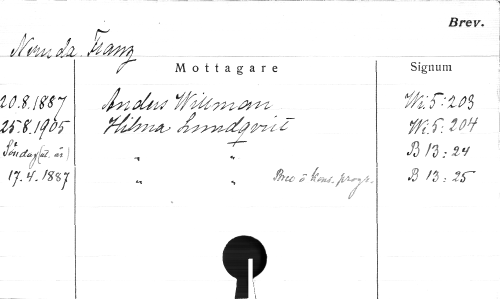 Brev.
Neruda Franz
Mottagare Signum
20.8.1887 Anders Willman Wi.5:203
25.8.1905 Hilma Lundqvist Wi.5:204
Söndag (u. år) " " B 13:24
17.4.1887 " " Brev o kons. progr. B 13:25